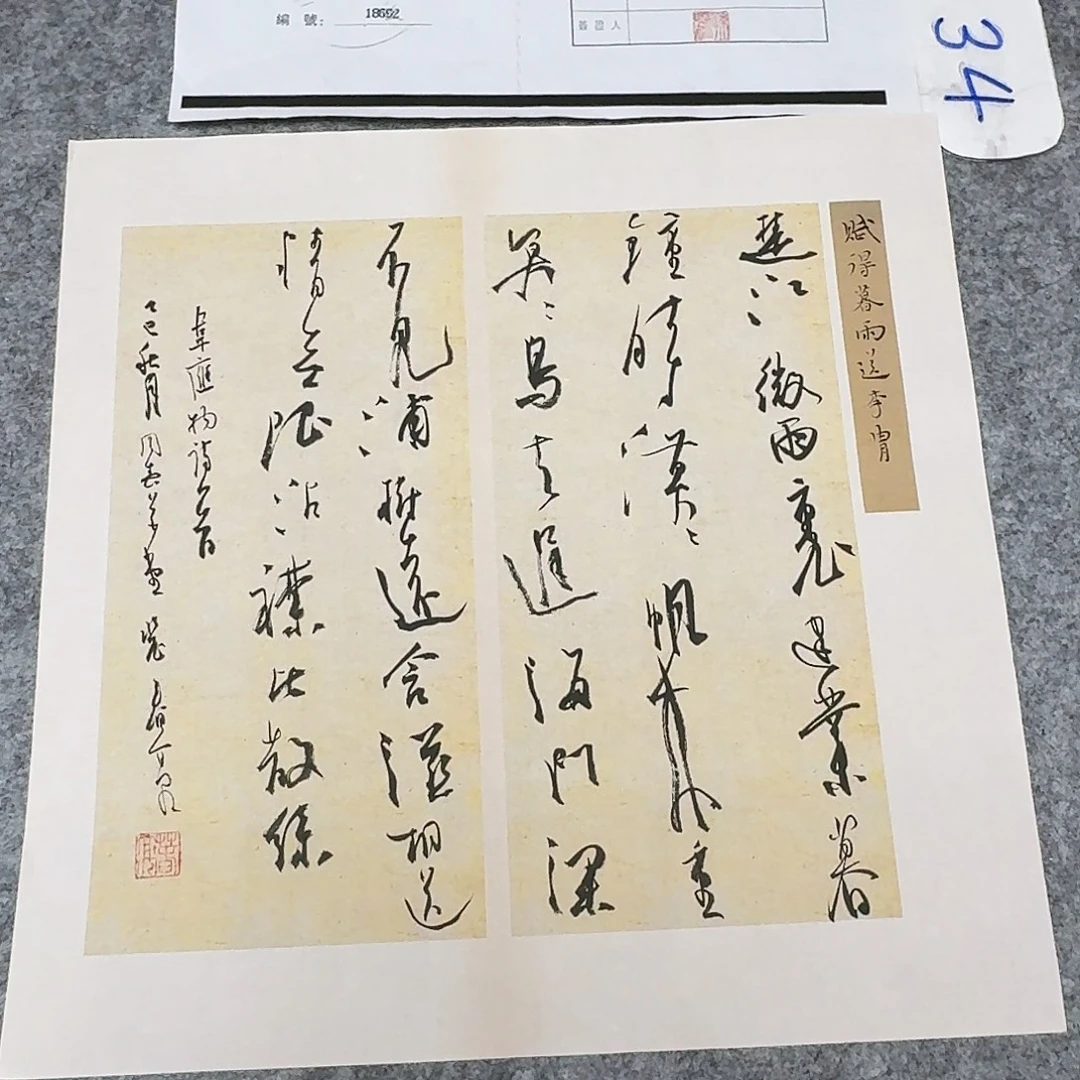 編 號: 18692
簽證人
34
賦得暮雨送李胄
楚江微雨裏建業暮
鍾時漠〻帆来重
冥〻鳥去遲海門深
不見浦樹遠含滋相送
情无限沾襟比散絲
韋應物詩一首
乙巳秋月